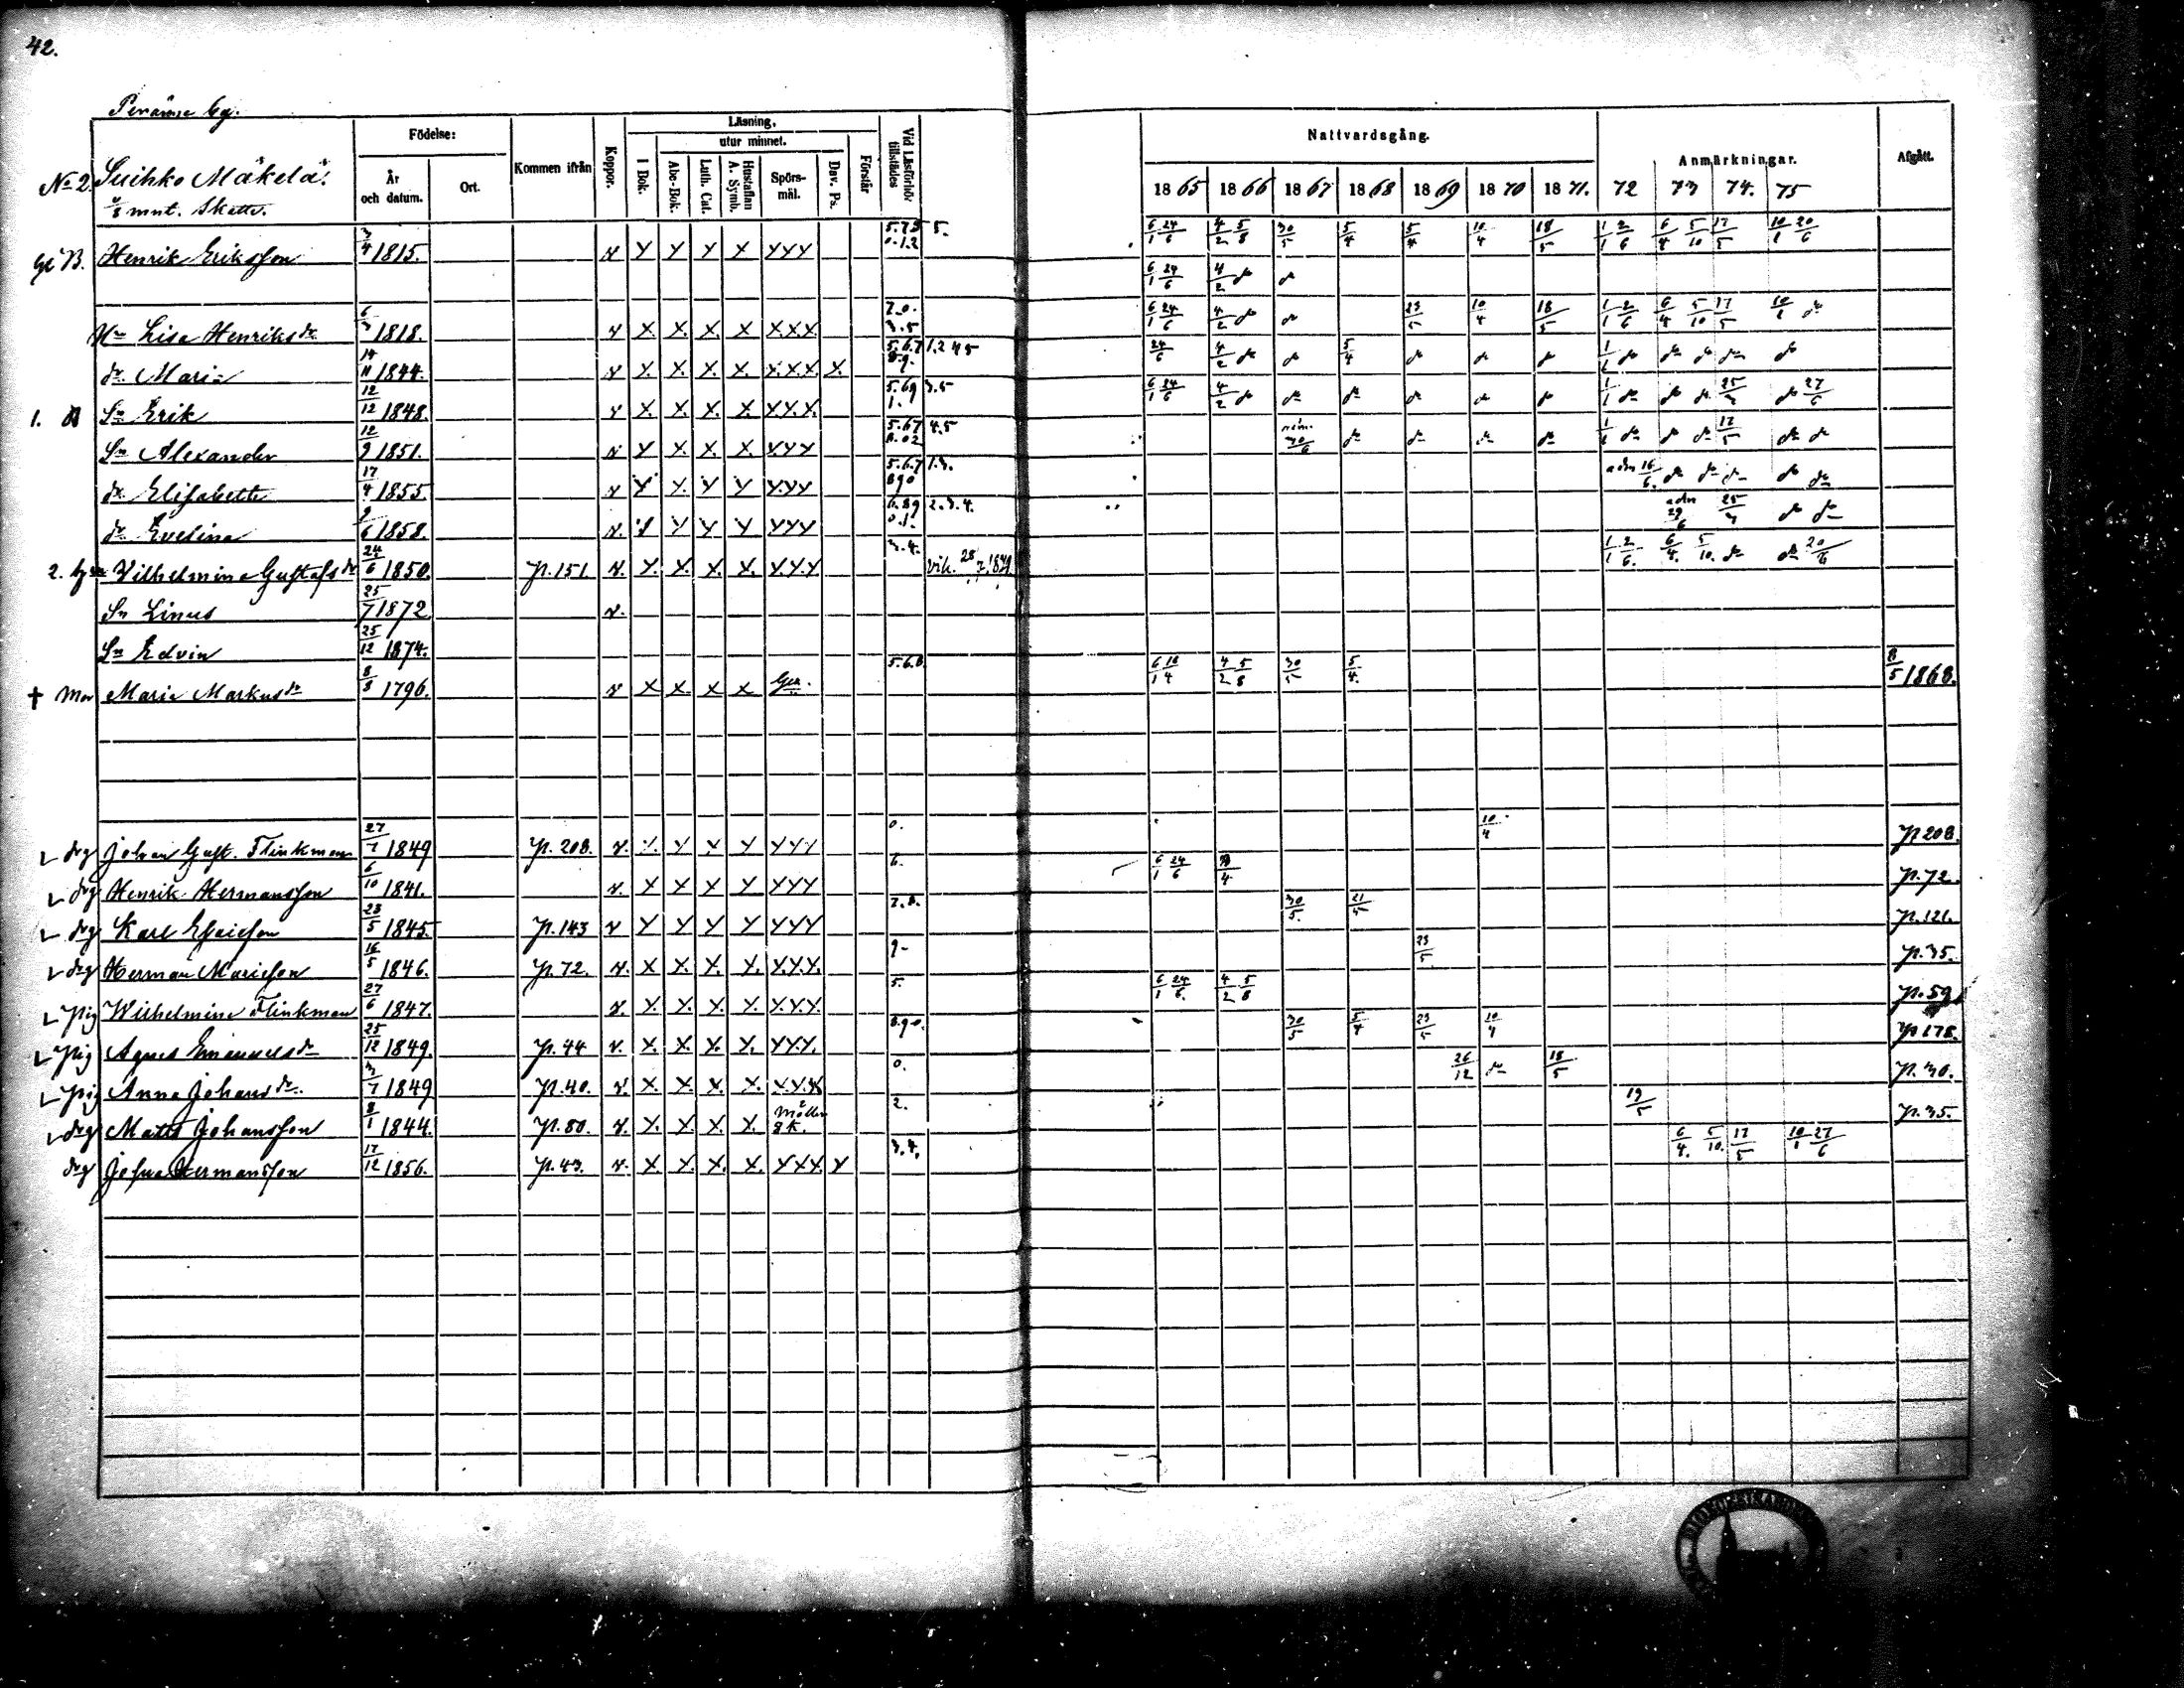 42.
Peränne by.
No 2. Suihko Mäkelä.
mnt. Skatte.
Födelse:
År och datum.
Ort.
Kommen ifrån
Koppor.
Läsning.
I Bok.
utur minnet.
Abc-Bok.
Luth. Cat.
Hustaflan A. Symb.
Spörsmål.
Dav. Ps.
Förstår
Vid Läsförhör tillstädes
Nattvardsgång.
1865 1866 1867 1868 1869 1870 1871.
Anmärkningar.
72 73 74. 75
Afgått.
Henrik Eriksson 3/4 1815. v Y Y Y X YYY 5. 6/1 24/6 4/2 5/8 30/5 5/4 5/4 10/4 18/5 1/1 2/6 6/4 5/10 17/5 10/1 20/6
6/1 24/6 4/2 do do
Hu Lisa Henriksdr 6/3 1818. v X. X. X. X X.X.X. 7.0. 3.5 6/1 24/6 4/2 do do 23/5 10/4 18/5 1/1 2/6 6/4 5/10 17/5 10/1 do
dr Maria 14/11 1844. v X. X. X. X. X.X.X. X 5.6.7 8.9. 1.2 4 5 24/6 4/2 do do 5/4 do do do 1/1 do do do do do
1. Sn Erik 12/12 1848. v X. X. X. X. X.X.X. 5.69 1. 3.5 6/1 24/6 4/2 do do do do do do 1/1 do do do 25/3 do 27/6
Sn Alexander 12/9 1851. v Y X. X. X. X.Y.Y 5.67 8.02 4.5 30/6 do do do do 1/1 do do do 17/5 do do
dr Elisabeth 17/4 1855. v Y X. Y Y Y.Y.Y 5.6.7 890 1.3. adm 16/6. do do do do do
dr Evelina 9/6 1858. v. Y Y Y Y YYY 6.89 0.1. 2.3.4. adm 29/6 25/3 do do
2. Vilhelmina Gustafsdr 24/6 1850. p.151 v. Y. X. X. X. X.Y.Y 3.4. vik. 28/7 1874 1/1 2/6. 6/4. 5/10. do do 20/6
Sn Linus 25/7 1872 v.
Sn Edvin 25/12 1874.
† Mor Maria Markusdr 8/3 1796. v X X. X X 5.6.8 6/1 18/4 4/2 5/8 30/5 5/4. 8/5 1868.
drg Johan Gust. Flinkman 27/7 1849 p. 208. v. X. Y Y Y YYY 0. 10/4 p 208.
drg Henrik Hermansson 6/10 1841. v. Y X X Y YYY 6. 6/1 24/6 p. 72.
drg Karl Esaiasson 23/5 1845 p.143 v Y Y Y Y YYY 7.8. 30/5. 21/5 p. 121.
drg Herman Mariason 16/5 1846. p.72. v. X X. X. X. X.X.X. 9- 23/5. p. 35.
pig Wilhelmina Flinkman 27/6 1847. v. X. X. X. X. X.X.X. 5. 6/1 24/6. 4/2 5/8 p. 59
pig Agnes Emanuelsdr 25/12 1849. p. 44 v. X. X. X. X. YY.Y. 8.90. 30/5 5/4 23/5 10/4 p 178.
pig Anna Johansdr. 3/7 1849 p.40. v. X X. X. X. X.Y.X 0. 26/12 do 18/5 p. 30.
drg Matts Johansson 8/1 1844. p.80. v. X. X. X. X. 2. 19/5 p. 35.
drg Josua Hermansson 17/12 1856. p.43. v. X X. X. X. YXX. Y 3.4. 6/4. 5/10. 17/5 10/1 27/6